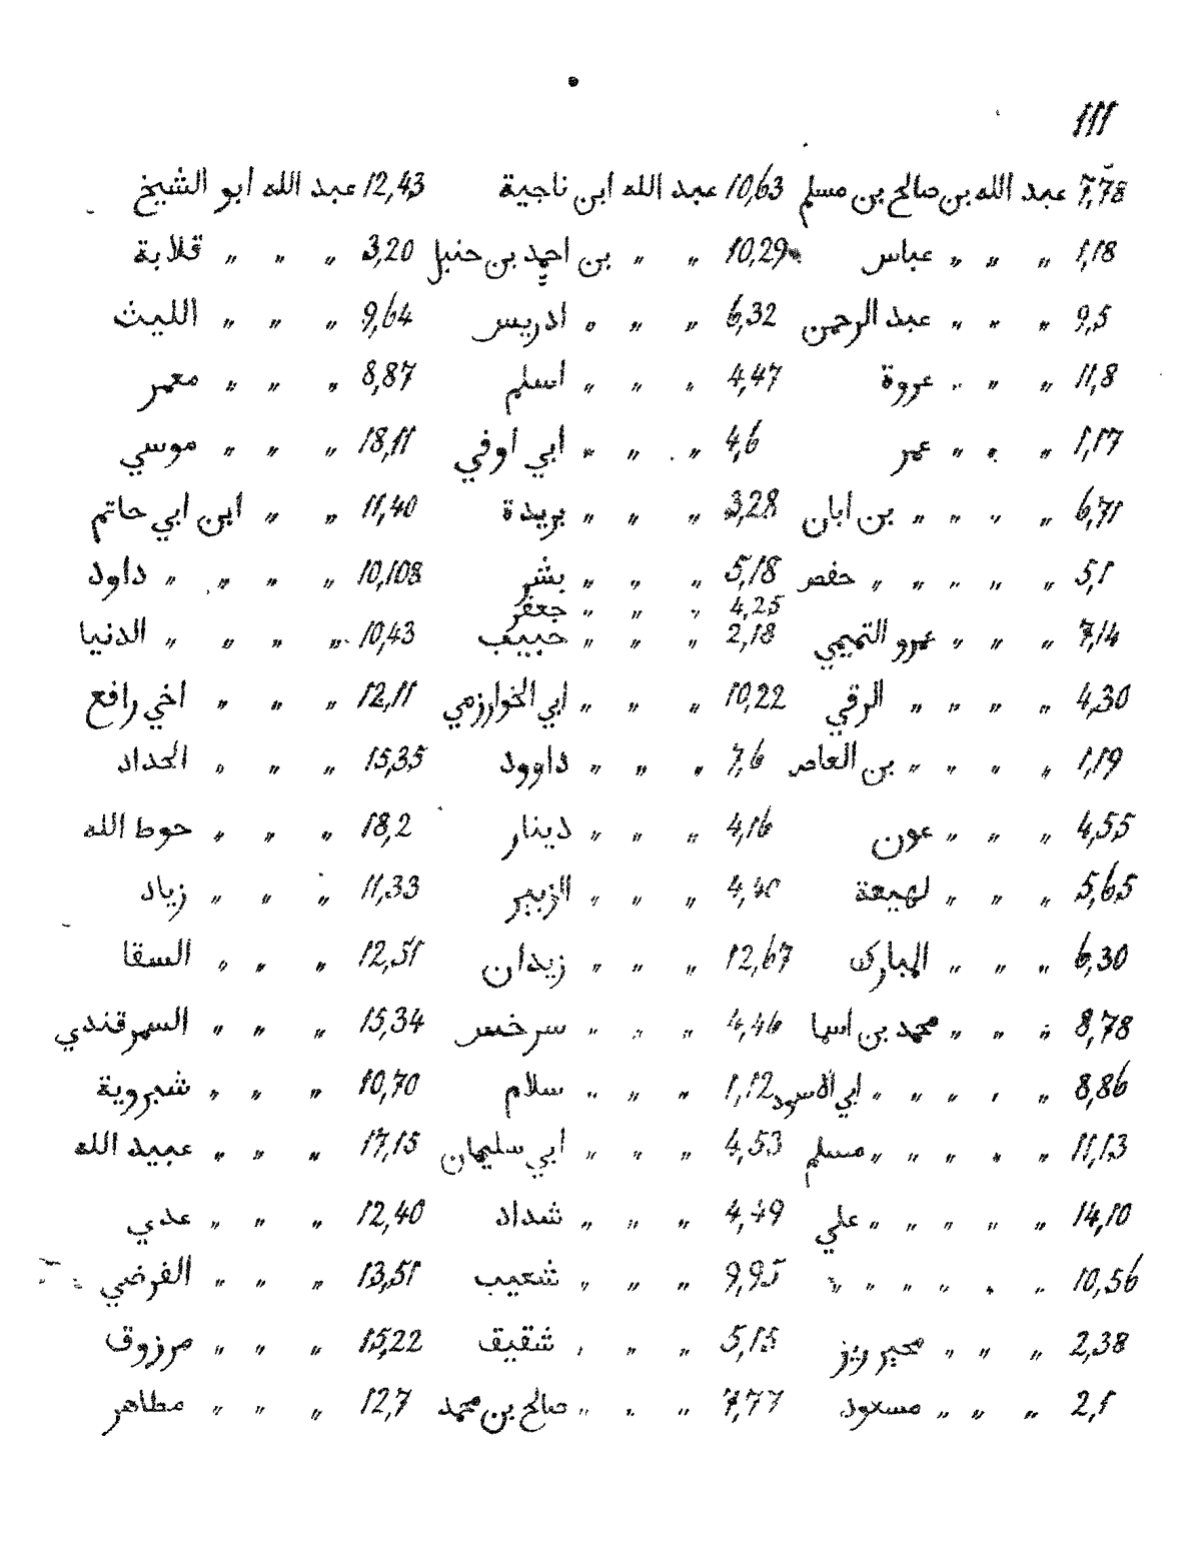 111
7,78 عبد الله بن صالح بن مسلم 10,63 عبد الله ابن ناجية 12,43 عبد الله ابو الشيخ
1,18 " " " عباس 10,29 " " بن احمد بن حنبل 3,20 " " " قلابة
9,5 " " " عبد الرحمن 6,32 " " " ادريس 9,64 " " " الليث
11,8 " " " عروة 4,47 " " " اسلم 8,87 " " " معمر
1,17 " " " عمر 4,6 " " " ابي اوفي 18,11 " " " موسي
6,71 " " " " بن ابان 3,28 " " " بريدة 11,40 " " ابن ابي حاتم
5,1 " " " " " حفص 5,18 " " " بشر 10,108 " " " " داود
4,25 " " " جعفر
7,14 " " " عمرو التميمي 2,18 " " " حبيب 10,43 " " " " الدنيا
4,30 " " " " الرقي 10,22 " " " ابي الخوارزمي 12,11 " " " اخي رافع
1,19 " " " " بن العاص 7,6 " " " داوود 15,35 " " " الحداد
4,55 " " " عون 4,16 " " " دينار 18,2 " " " حوط الله
5,65 " " " لهيعة 4,40 " " " الزبير 11,33 " " " زياد
6,30 " " " المبارك 12,67 " " " زيدان 12,51 " " " السقا
8,78 " " " محمد بن اسما 4,46 " " " سرخس 15,34 " " " السمرقندي
8,86 " " " " " ابي الاسود 1,12 " " " سلام 10,70 " " " شيروية
11,13 " " " " " مسلم 4,53 " " " ابي سليمان 17,15 " " " عبيد الله
14,10 " " " " " علي 4,49 " " " شداد 12,40 " " " عدي
10,56 " " " " " " 9,95 " " " شعيب 13,51 " " " الفرضي
2,38 " " " محيريز 5,15 " " " شقيق 15,22 " " " مرزوق
2,1 " " " مسعود 7,77 " " " صالح بن محمد 12,7 " " " مطاهر